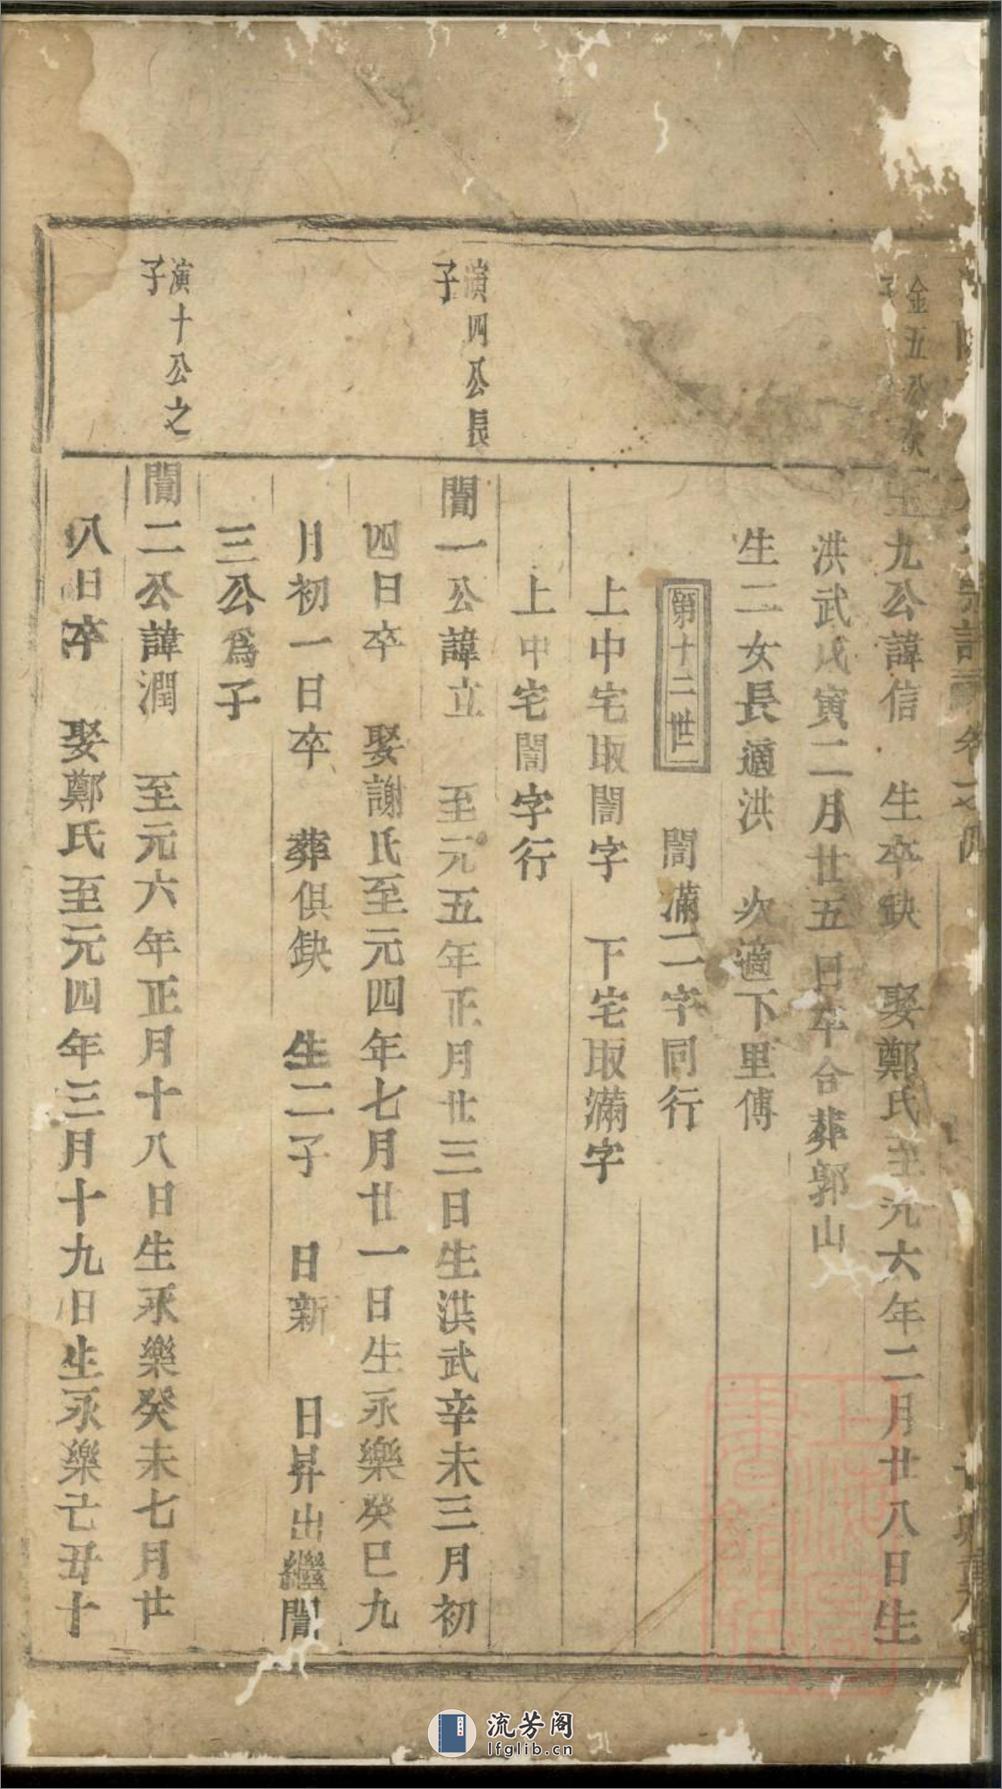 金五公次
子
九公諱信　生卒缺　娶鄭氏至元六年二月廿八日生
洪武戊寅二月廿五日卒合葬郭山
生二女長適洪　次適下里傅
第十二世　誾滿二字同行
上中宅取誾字　下宅取滿字
上中宅誾字行
演四公長
子
誾一公諱立　至元五年正月廿三日生洪武辛未三月初
四日卒　娶謝氏至元四年七月廿一日生永樂癸巳九
月初一日卒　葬俱缺　生二子　日新　日昇出繼誾
三公爲子
演十公之
子
誾二公諱潤　至元六年正月十八日生永樂癸未七月廿
八日卒　娶鄭氏至元四年三月十九日生永樂己丑十
流芳阁
lfglib.cn